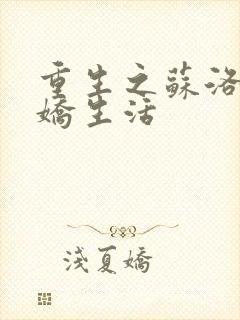 重生之蘇洛
嬌生活
淺夏嬌